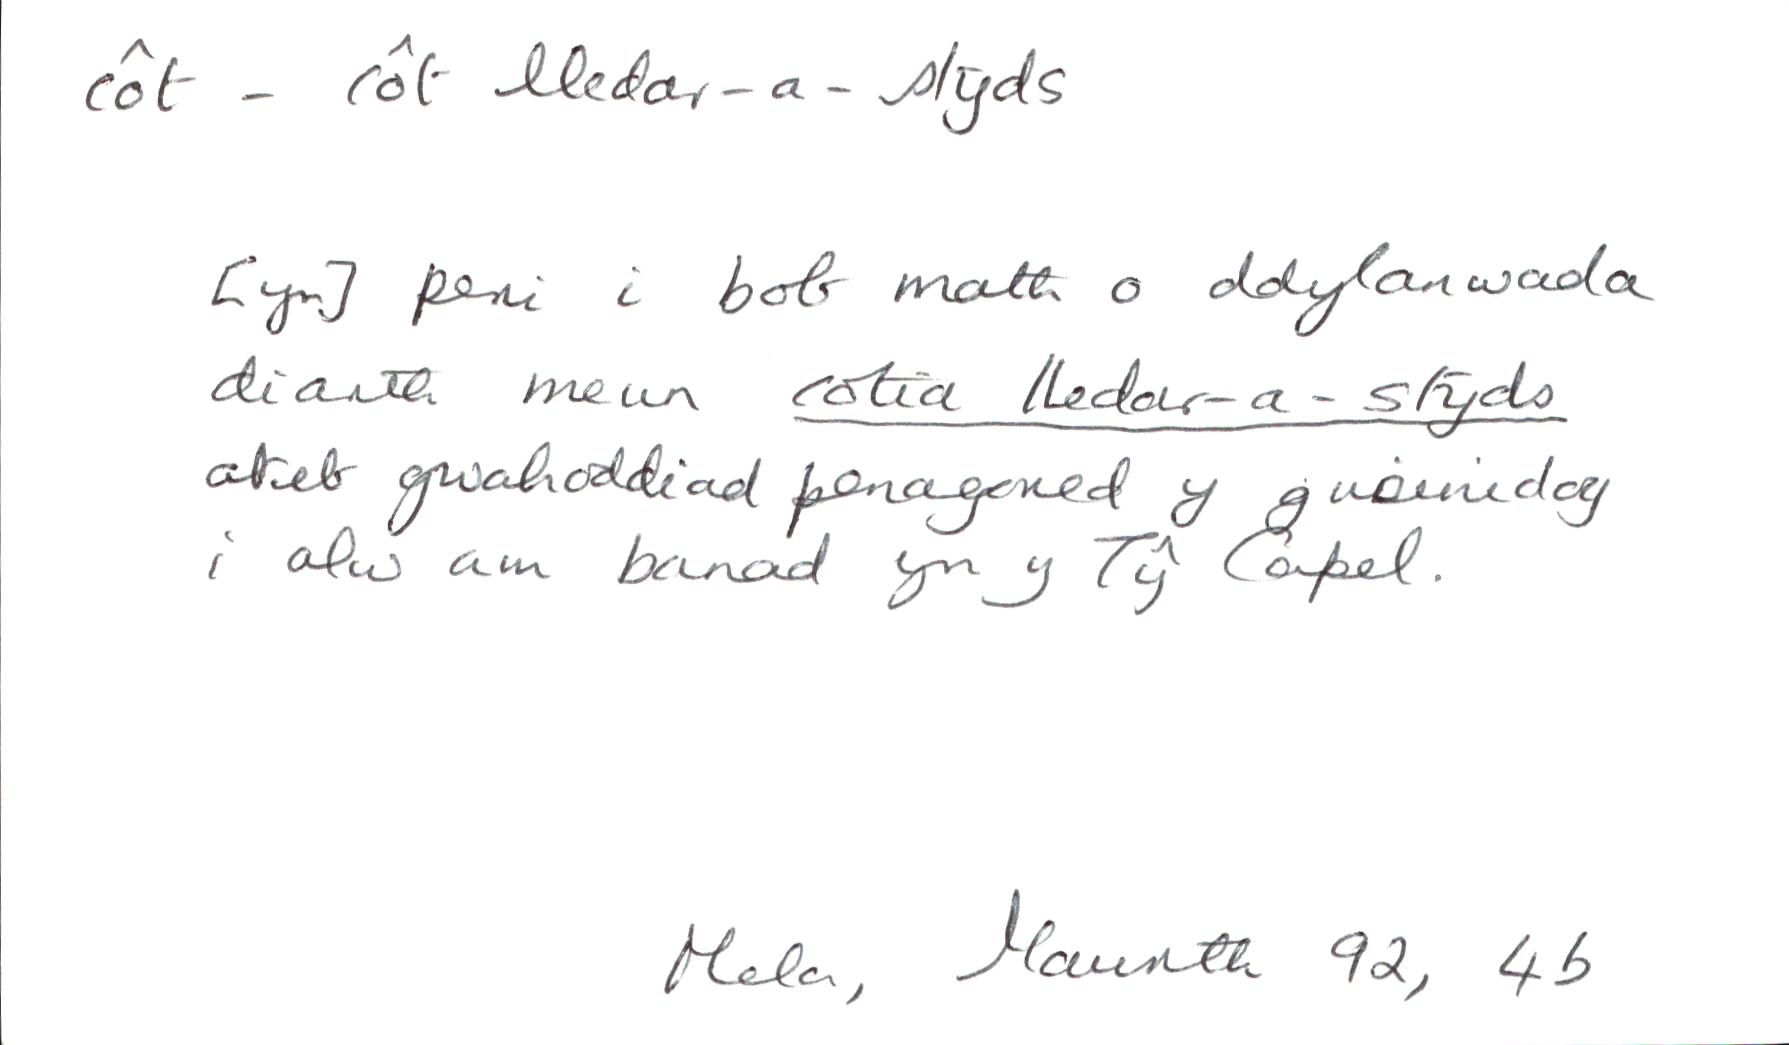 côt - côt lledar-a-stỳds
[yn] peri i bob math o ddylanwada
diarth mewn cotia lledar-a-stỳds
ateb gwahoddiad penagored y gweinidog
i alw am banad yn y Tŷ Capel.
Mela, Mawrth 92, 4b